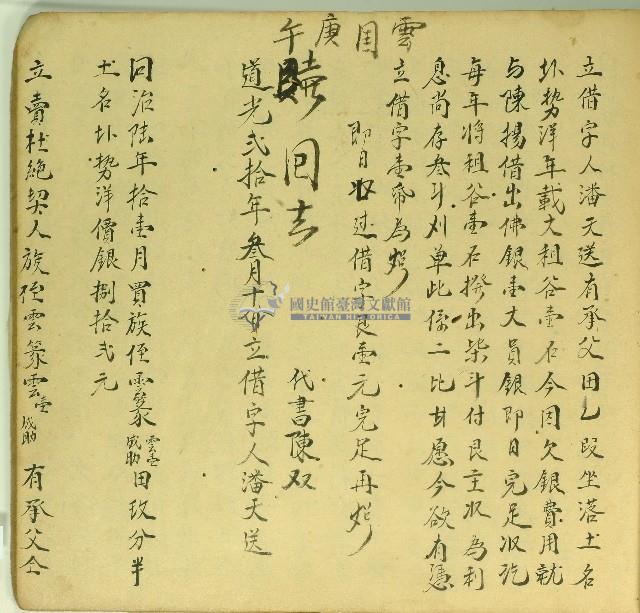 雲閏庚午
立借字人潘天送有承父田乙段坐落土名
圤勢洋年載大租谷壹石今因欠銀費用就
与陳揚借出佛銀壹大員銀即日完足收訖
每年将租谷壹石撥出柴斗付艮主收為利
息尚存叁斗刈单此係二比甘愿今欲有憑
立借字壹帋為炤
即日收过借字艮壹元完足再炤
代書陳双
道光弍拾年叁月十 日立借字人潘天送
贖回去
同治陸年拾壹月買族侄雲篆雲壹成助田玫分半
土名圤势洋價銀捌拾弍元
立賣杜絕契人族侄雲篆雲壹成助有承父仝
國史館臺灣文獻館
TAIWAN HISTORICA